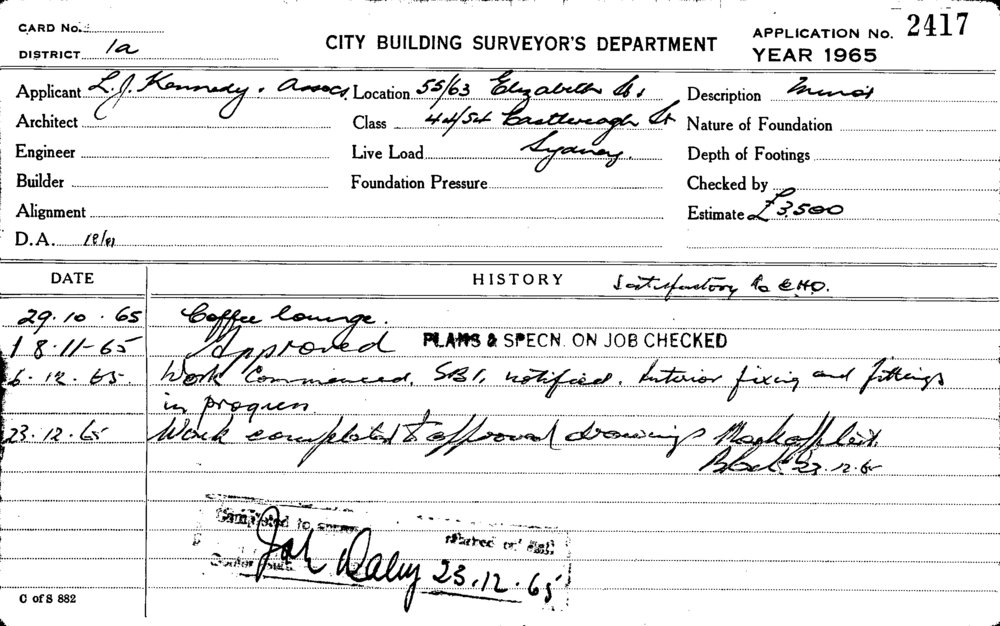 CARD No.
DISTRICT 1a
CITY BUILDING SURVEYOR'S DEPARTMENT
APPLICATION No. 2417
YEAR 1965
Applicant L.J. Kennedy. Assocs. Location 55/63 Elizabeth St Description Minor
Architect Class 44/54 Castlereagh St Nature of Foundation
Engineer Live Load Sydney. Depth of Footings
Builder Foundation Pressure Checked by
Alignment Estimate £3,500
D.A.
DATE HISTORY Satisfactory to CHO.
29.10.65 Coffee lounge.
18.11-65 Approved PLANS & SPECN. ON JOB CHECKED
6.12.65. Work Commenced. SBI. notified. Interior fixing and fittings
in progress
23.12.65 Work completed to approved drawings Mark off
23.12.65
Completed to
Marked off
Daley 23.12.65
C of S 882